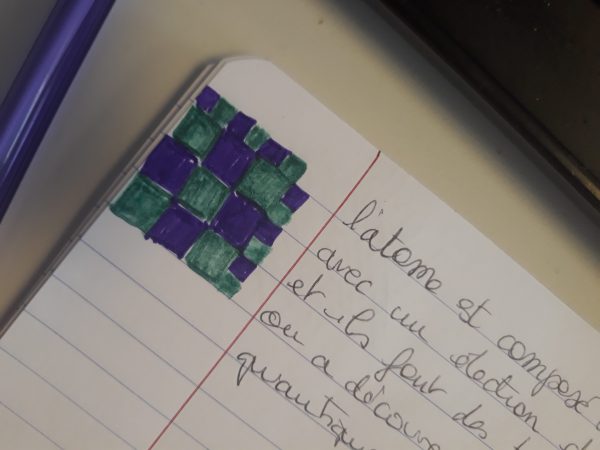 l'atome est composé
avec un électron d
et ils font des t
on a découve
quantique